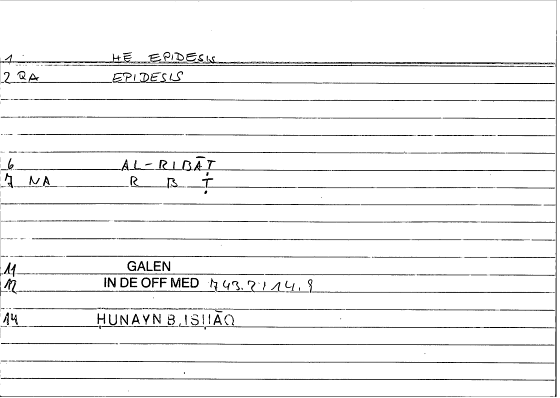 1 HE EPIDESIS
2 QA EPIDESIS
6 AL-RIBĀṬ
7 NA R B Ṭ
11 GALEN
12 IN DE OFF MED 743.2/14.9
14 ḤUNAYN B. ISḤĀQ